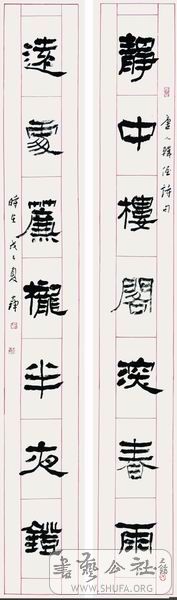 靜中樓閣深春雨
唐人韓偓詩句
遠處簾櫳半夜鐙
時在戊子夏
書藝公社
WWW.SHUFA.ORG